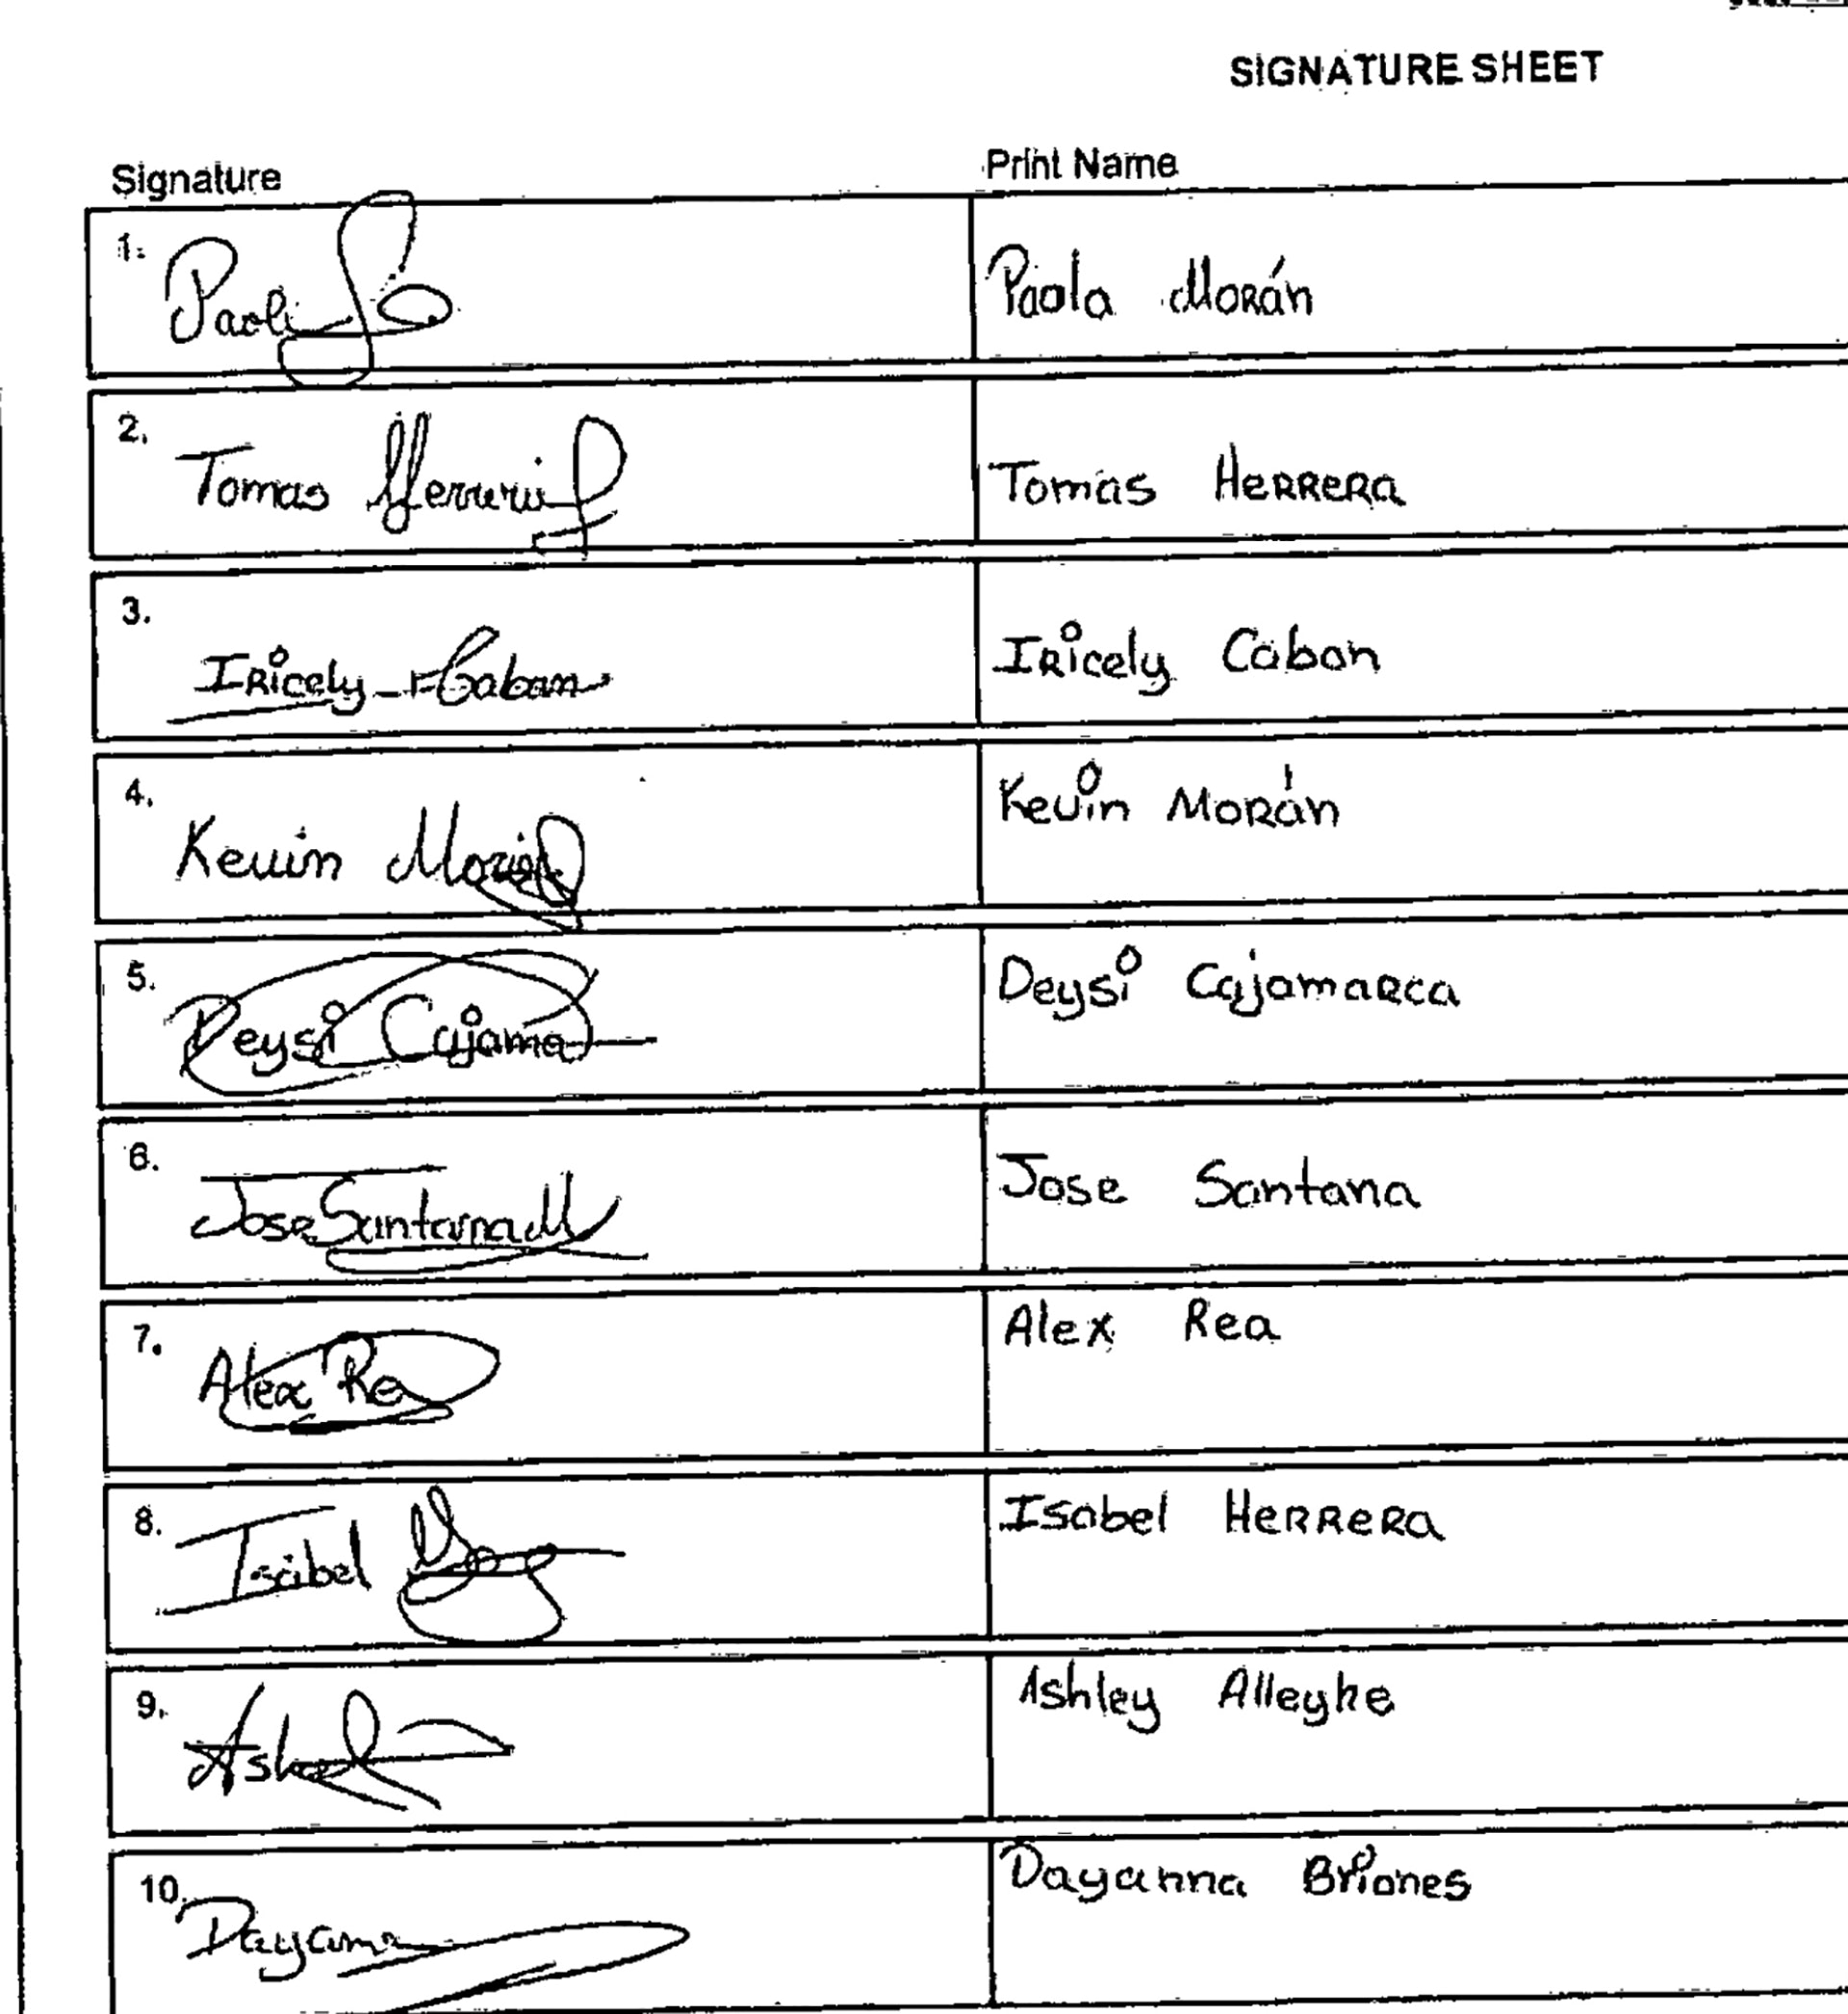 SIGNATURE SHEET
Signature Print Name
1. Paola Morán
2. Tomas Herrera Tomas HERRERA
3. Iricely Caban Iricely Caban
4. Kevin Kevin Morán
5. Deysi Cajama Deysi Cajamarca
6. Jose Santana M Jose Santana
7. Alex Re Alex Rea
8. Isabel Isabel HERRERA
9. Ashley Alleyne
10. Dayanna Briones